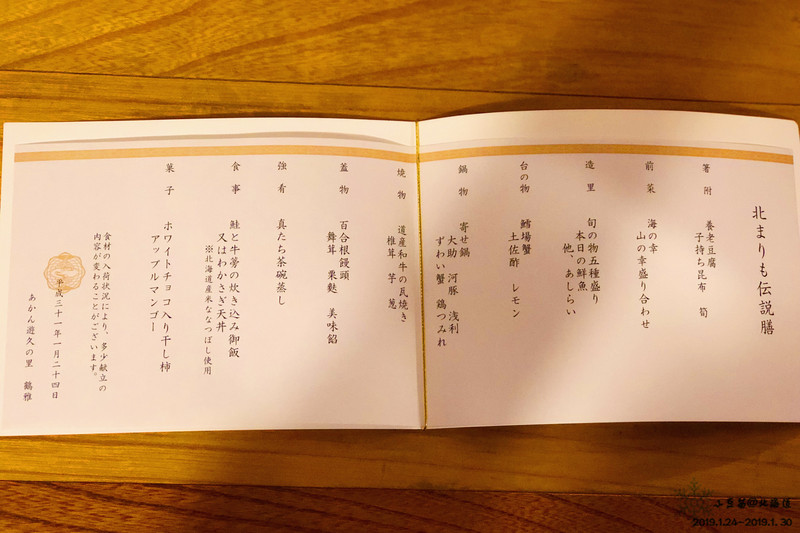 北まりも伝説膳
箸附
養老豆腐
子持ち昆布　筍
前菜
海の幸
山の幸盛り合わせ
造里
旬の物五種盛り
本日の鮮魚
他、あしらい
台の物
鱈場蟹
土佐酢　レモン
鍋物
寄せ鍋
大助　河豚　浅利
ずわい蟹　鶏つみれ
焼物
道産和牛の瓦焼き
椎茸　芋　葱
蓋物
百合根饅頭
舞茸　栗麩　美味餡
強肴
真たち茶碗蒸し
食事
鮭と牛蒡の炊き込み御飯
又はわかさぎ天丼
※北海道産米ななつぼし使用
菓子
ホワイトチョコ入り干し柿
アップルマンゴー
食材の入荷状況により、多少献立の
内容が変わることがございます。
平成三十一年一月二十四日
あかん遊久の里　鶴雅
2019.1.24~2019.1.30